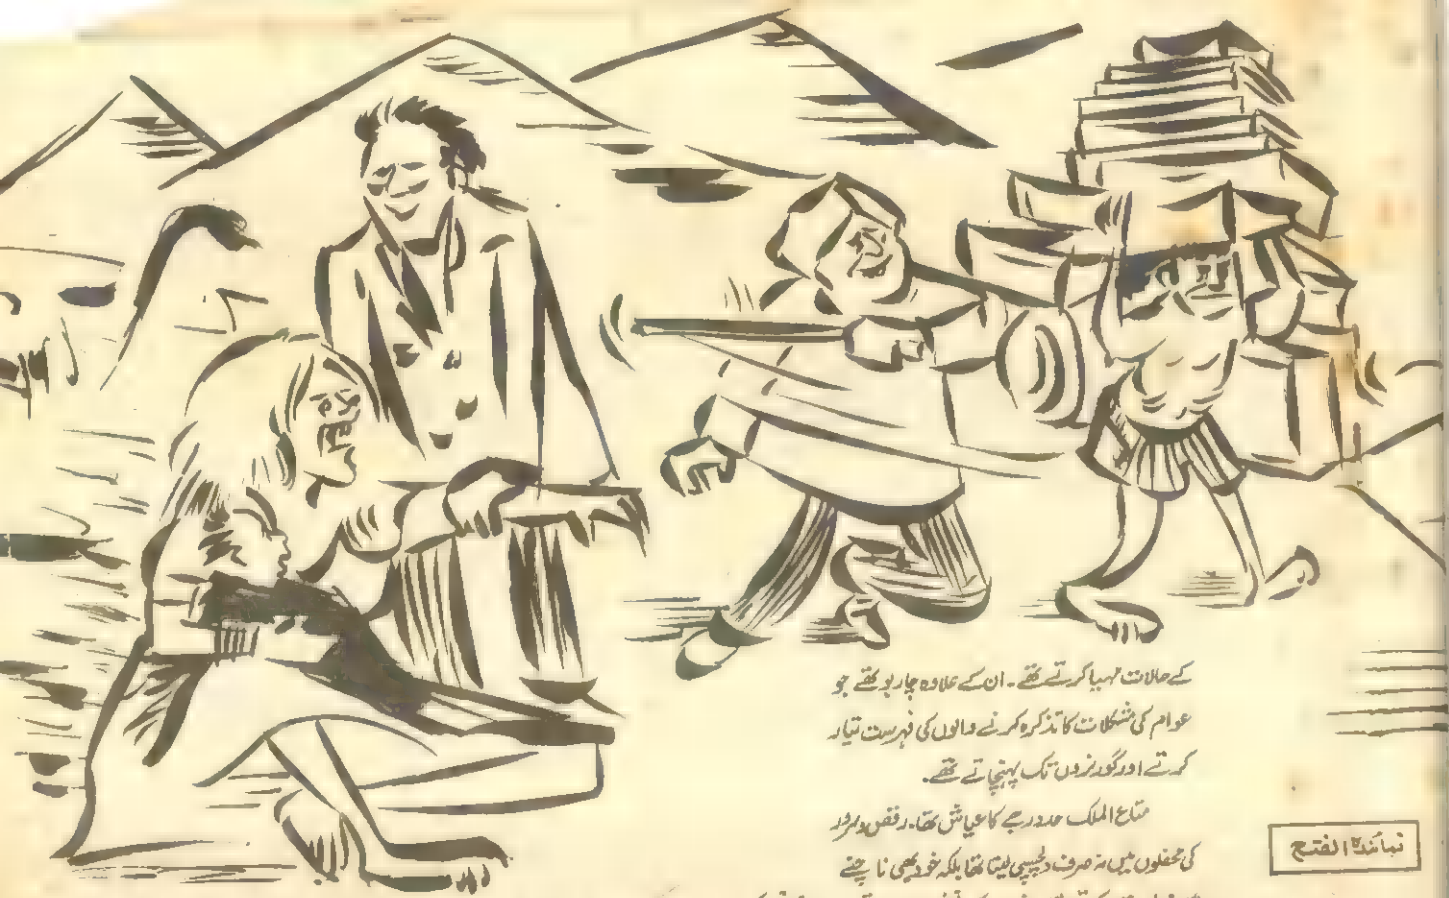 کے حالات مہیا کرتے تھے۔ ان کے علاوہ چاربو تھے جو
عوام کی مشکلات کا تذکرہ کرنے والوں کی فہرست تیار
کرتے اور گورنروں تک پہنچاتے تھے۔
متاع الملک حد درجے کا عیاش تھا۔ رقص و سرور
کی محفلوں میں نہ صرف دلچسپی لیتا تھا بلکہ خود بھی ناچنے
نمائندہ الفتح